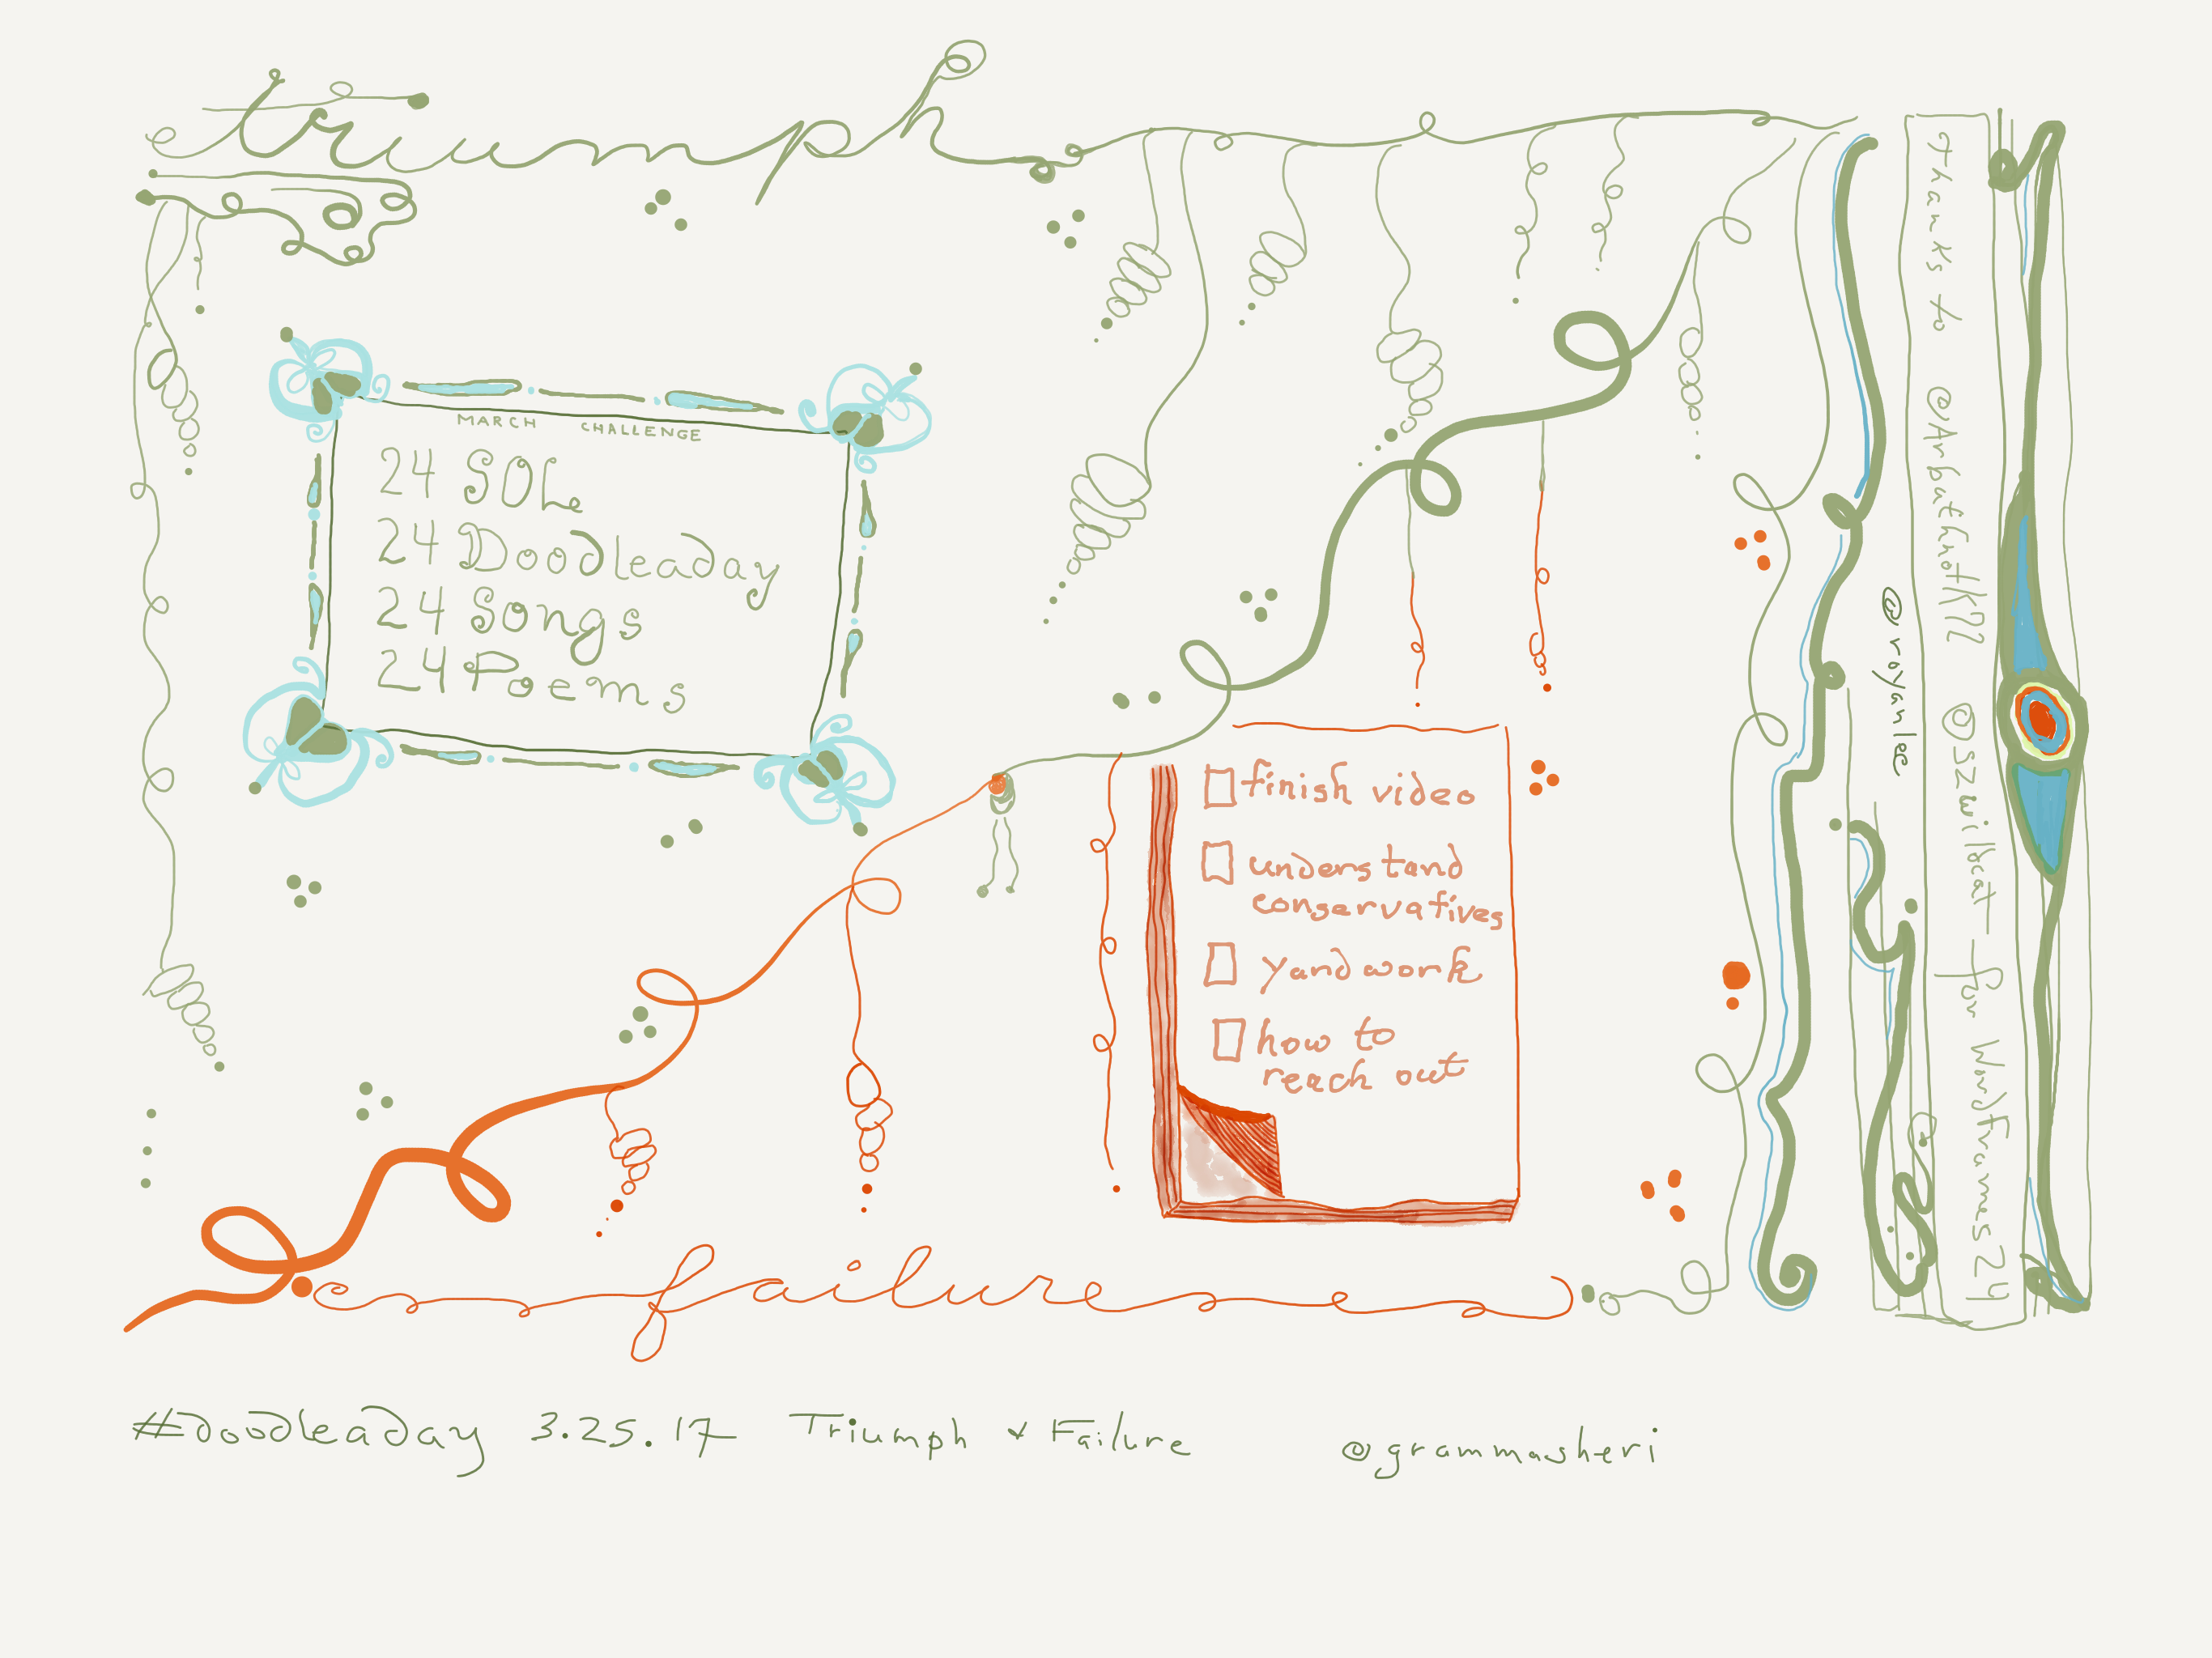 triumph
MARCH CHALLENGE
24 SOL
24 Doodleaday
24 Songs
24 Poems
finish video
understand
conservatives
yardwork
how to
reach out
failure
@royanlee
thanks to @ArbuthnotKR2 @szwillcat for WordFrames24
#Doodleaday 3.25.17 Triumph & Failure @grammasheri